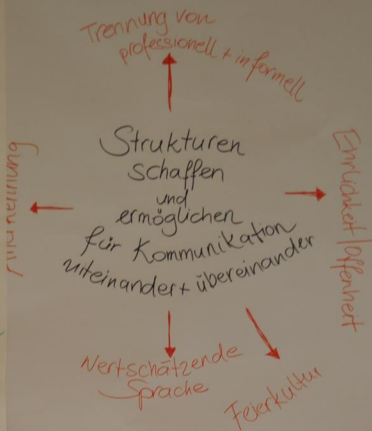 Trennung von
professionell + informell
Strukturen
schaffen
und
ermöglichen
für Kommunikation
miteinander + übereinander
Ehrlichkeit/Offenheit
Wertschätzende
Sprache
Feierkultur